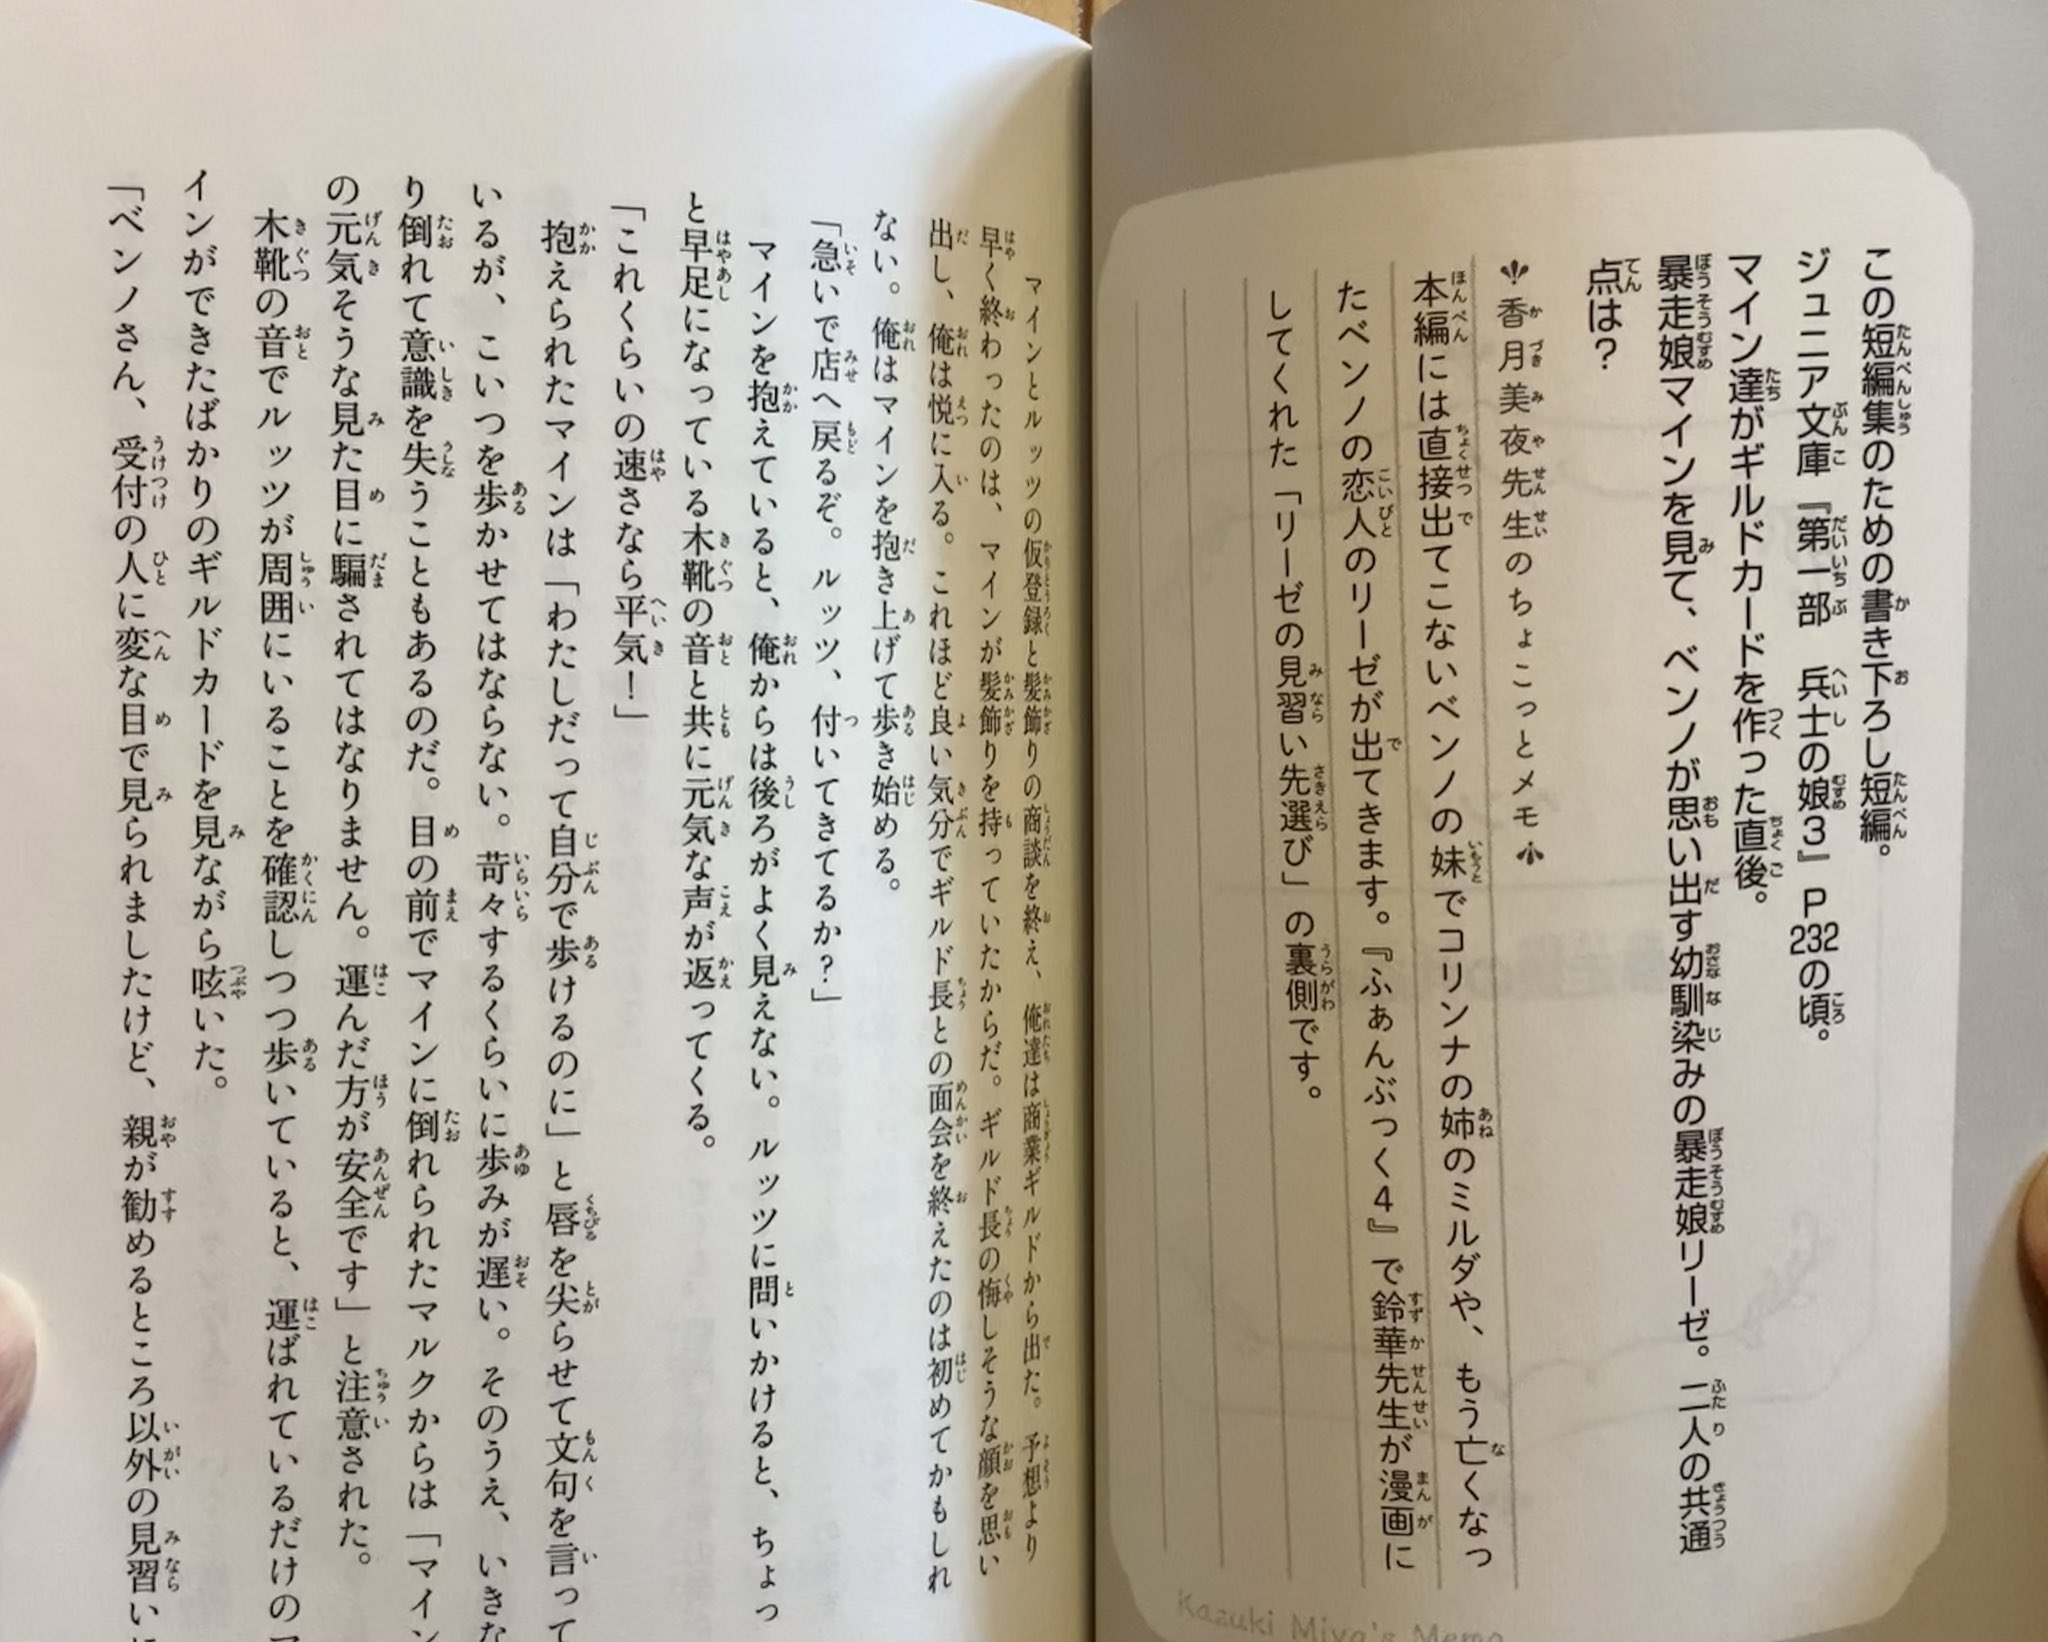 この短編集のための書き下ろし短編。
ジュニア文庫『第一部　兵士の娘３』Ｐ232の頃。
マイン達がギルドカードを作った直後。
暴走娘マインを見て、ベンノが思い出す幼馴染みの暴走娘リーゼ。二人の共通
点は？
香月美夜先生のちょこっとメモ
本編には直接出てこないベンノの妹でコリンナの姉のミルダや、もう亡くなっ
たベンノの恋人のリーゼが出てきます。『ふぁんぶっく４』で鈴華先生が漫画に
してくれた「リーゼの見習い先選び」の裏側です。
Kazuki Miya's Memo
マインとルッツの仮登録と髪飾りの商談を終え、俺達は商業ギルドから出た。予想より
早く終わったのは、マインが髪飾りを持っていたからだ。ギルド長の悔しそうな顔を思い
出し、俺は悦に入る。これほど良い気分でギルド長との面会を終えたのは初めてかもしれ
ない。俺はマインを抱き上げて歩き始める。
「急いで店へ戻るぞ。ルッツ、付いてきてるか？」
マインを抱えていると、俺からは後ろがよく見えない。ルッツに問いかけると、ちょっ
と早足になっている木靴の音と共に元気な声が返ってくる。
「これくらいの速さなら平気！」
抱えられたマインは「わたしだって自分で歩けるのに」と唇を尖らせて文句を言って
いるが、こいつを歩かせてはならない。苛々するくらいに歩みが遅い。そのうえ、いきな
り倒れて意識を失うこともあるのだ。目の前でマインに倒れられたマルクからは「マイン
の元気そうな見た目に騙されてはなりません。運んだ方が安全です」と注意された。
木靴の音でルッツが周囲にいることを確認しつつ歩いていると、運ばれているだけのマ
インができたばかりのギルドカードを見ながら呟いた。
「ベンノさん、受付の人に変な目で見られましたけど、親が勧めるところ以外の見習いに